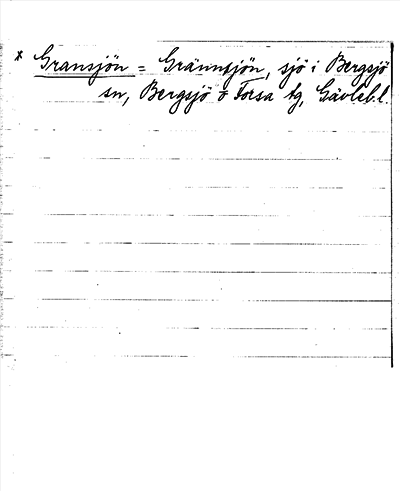 x Gransjön = Grännsjön, sjö i Bergsjö
sn, Bergsjö o Forsa tg, Gävleb.l.